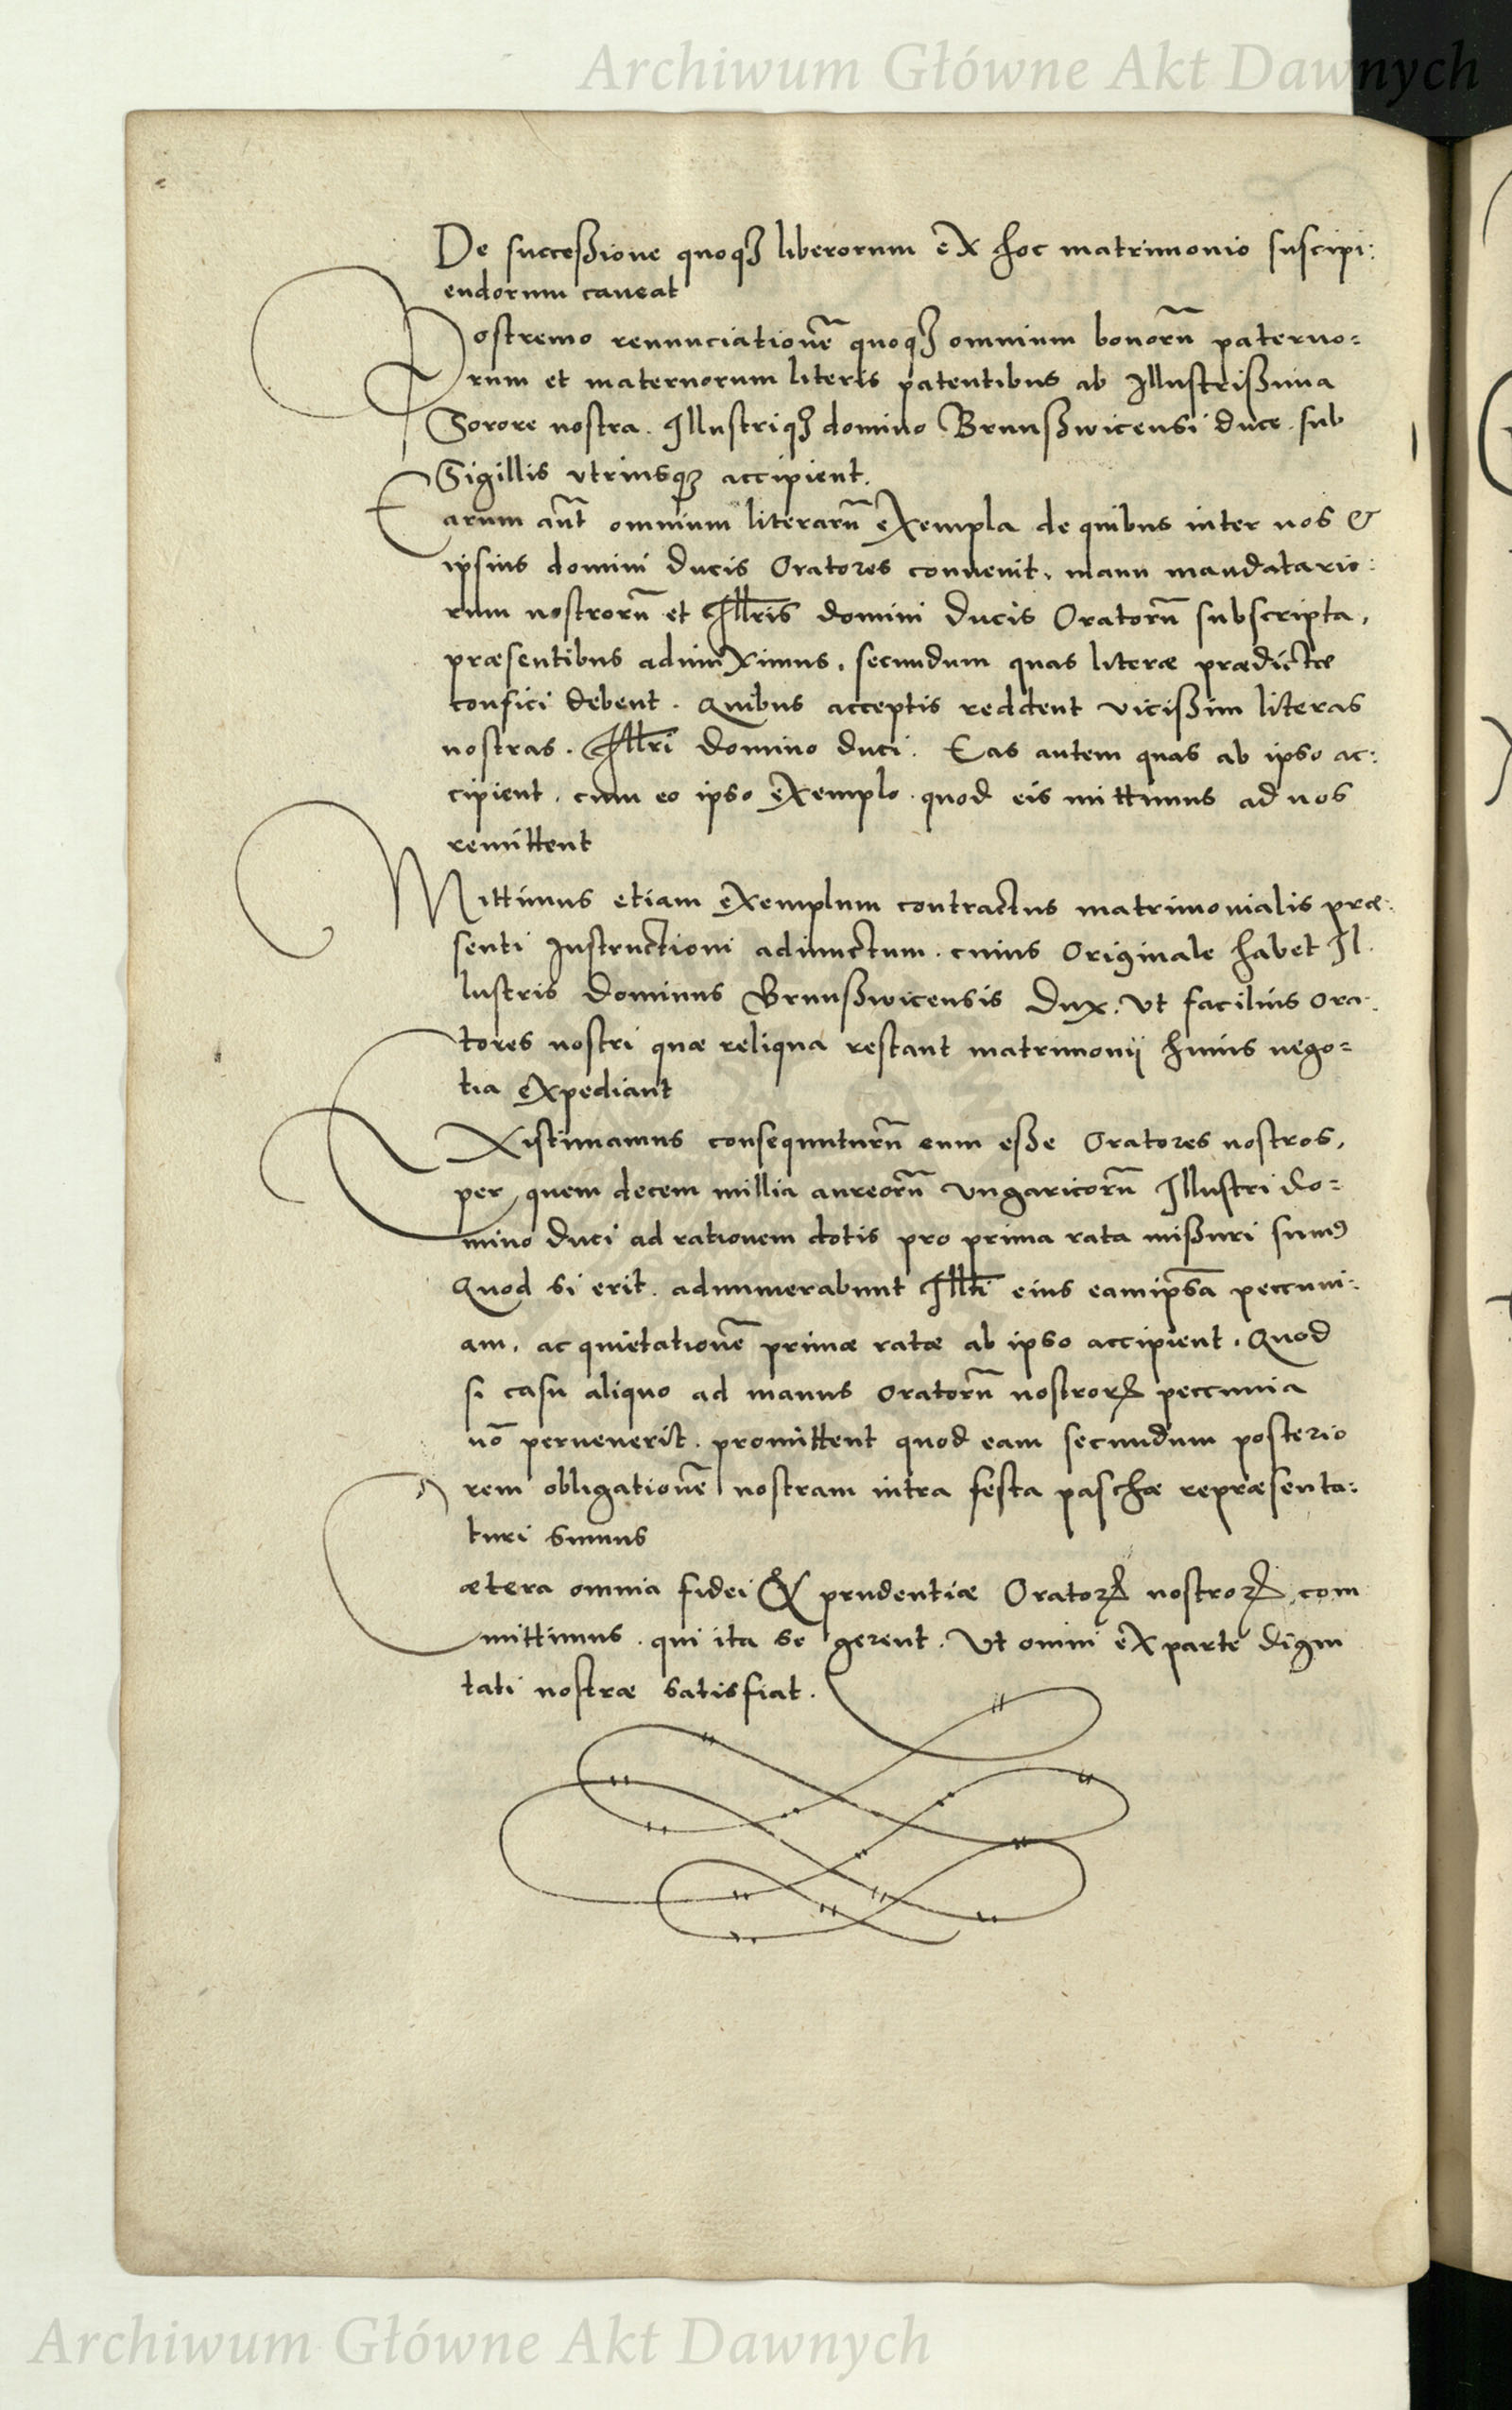 Archiwum Główne Akt Dawnych
De successione quoqꝫ liberorum ex hoc matrimonio suscipi:
endorum caueat
Postremo renunciationē quoqꝫ omnium bonorū paterno=
rum et maternorum literis patentibus ab Illustrissima
Sorore nostra. Illustriqꝫ domino Brunßwicensi duce. sub
Sigillis vtriusqꝫ accipient.
Earum aūt omnium literarū exempla de quibus inter nos &
ipsius domini ducis Oratores conuenit, manu mandatario:
rum nostrorū et Illris domini ducis Oratorū subscripta,
præsentibus adiunximus, secundum quas literæ prædictæ
confici debent. Quibus acceptis reddent vicißim literas
nostras. Illri domino duci. Eas autem quas ab ipso ac:
cipient, cum eo ipso exemplo. quod eis mittimus ad nos
remittent
Mittimus etiam exemplum contractus matrimonialis præ:
senti Instructioni adiunctum. cuius Originale habet Il
lustris dominus Brunßwicensis Dux. Vt facilius ora:
tores nostri quæ reliqua restant matrimonij huius nego=
tia expediant
Existimamus consequuturū eum eße Oratores nostros,
per quem decem millia aureorū Vngaricorū Illustri do=
mino duci ad rationem dotis pro prima rata mißuri sumꝰ
Quod si erit. adnumerabunt Illti eius eamip̄sā peccuni:
am, ac quietationē primæ ratæ ab ipso accipient. Quod
si casu aliquo ad manus oratorū nostroꝝ peccunia
nō peruenerit. promittent quod eam secundum posterio
rem obligationē nostram intra festa paschæ repræsenta:
turi sumus
Cætera omnia fidei & prudentiæ Oratoꝝ nostroꝝ com
mittimus. qui ita se gerent. Vt omni ex parte digni
tati nostræ satisfiat.
Archiwum Główne Akt Dawnych